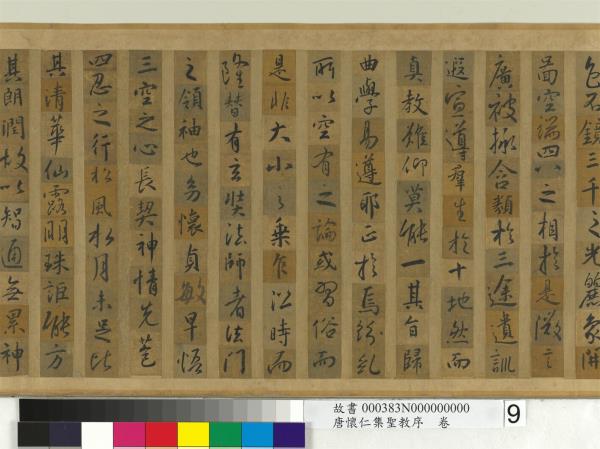 色不鏡三千之光麗象開
圖空端四八之相於是微言
廣被拯含類於三途遺訓
遐宣導羣生於十地然而
真教難仰莫能一其旨歸
曲學易遵邪正於焉紛糺
所以空有之論或習俗而
是非大小之乘乍沿時而
隆替有玄奘法師者法門
之領袖也幼懷貞敏早悟
三空之心長契神情先苞
四忍之行松風水月未足比
其清華仙露明珠詎能方
其朗潤故以智通无累神
故書 000383N000000000
唐懷仁集聖教序 卷
9